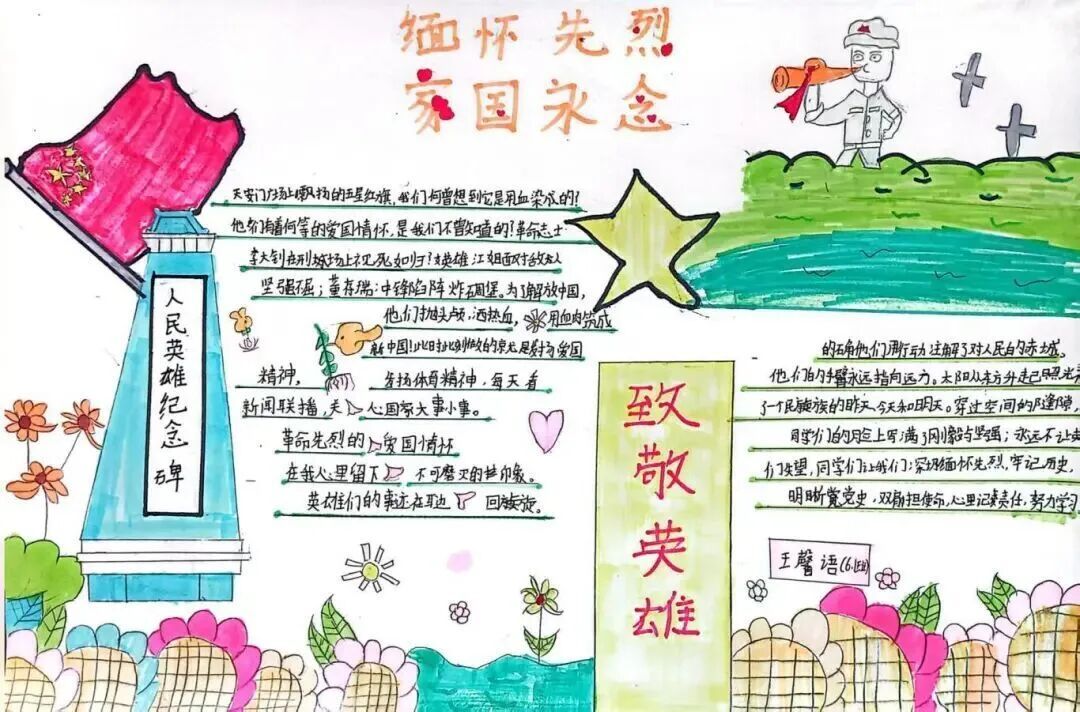 缅怀先烈
家国永念
天安门广场上飘扬的五星红旗,我们何曾想到它是用血染成的?
他们有着何等的爱国情怀,是我们不曾知道的?革命志士
李大钊在刑场上视死如归?英雄江姐面对敌人
坚强不屈;董存瑞:冲锋陷阵炸碉堡。为了解放中国,
他们抛头颅,洒热血,用血肉筑成
新中国!此时此刻
爱国
精神,
发扬体育精神,每天看
新闻联播,关心国家大事小事。
革命先烈的爱国情怀
在我心里留下不可磨灭的印象。
英雄们的事迹在耳边回旋。
人民英雄纪念碑
致敬英雄
他们用行动注解了对人民的赤城。
他们的手臂永远指向远方。太阳从东方升起
了一个民族的昨天、今天和明天。穿过空间的隧
同学们的脸上写满了刚毅与坚强;永远不让英
们失望,同学们让我们:深切缅怀先烈,牢记历史,
明晰党史,双肩担使命,心里记责任,努力学习
王馨语(6.